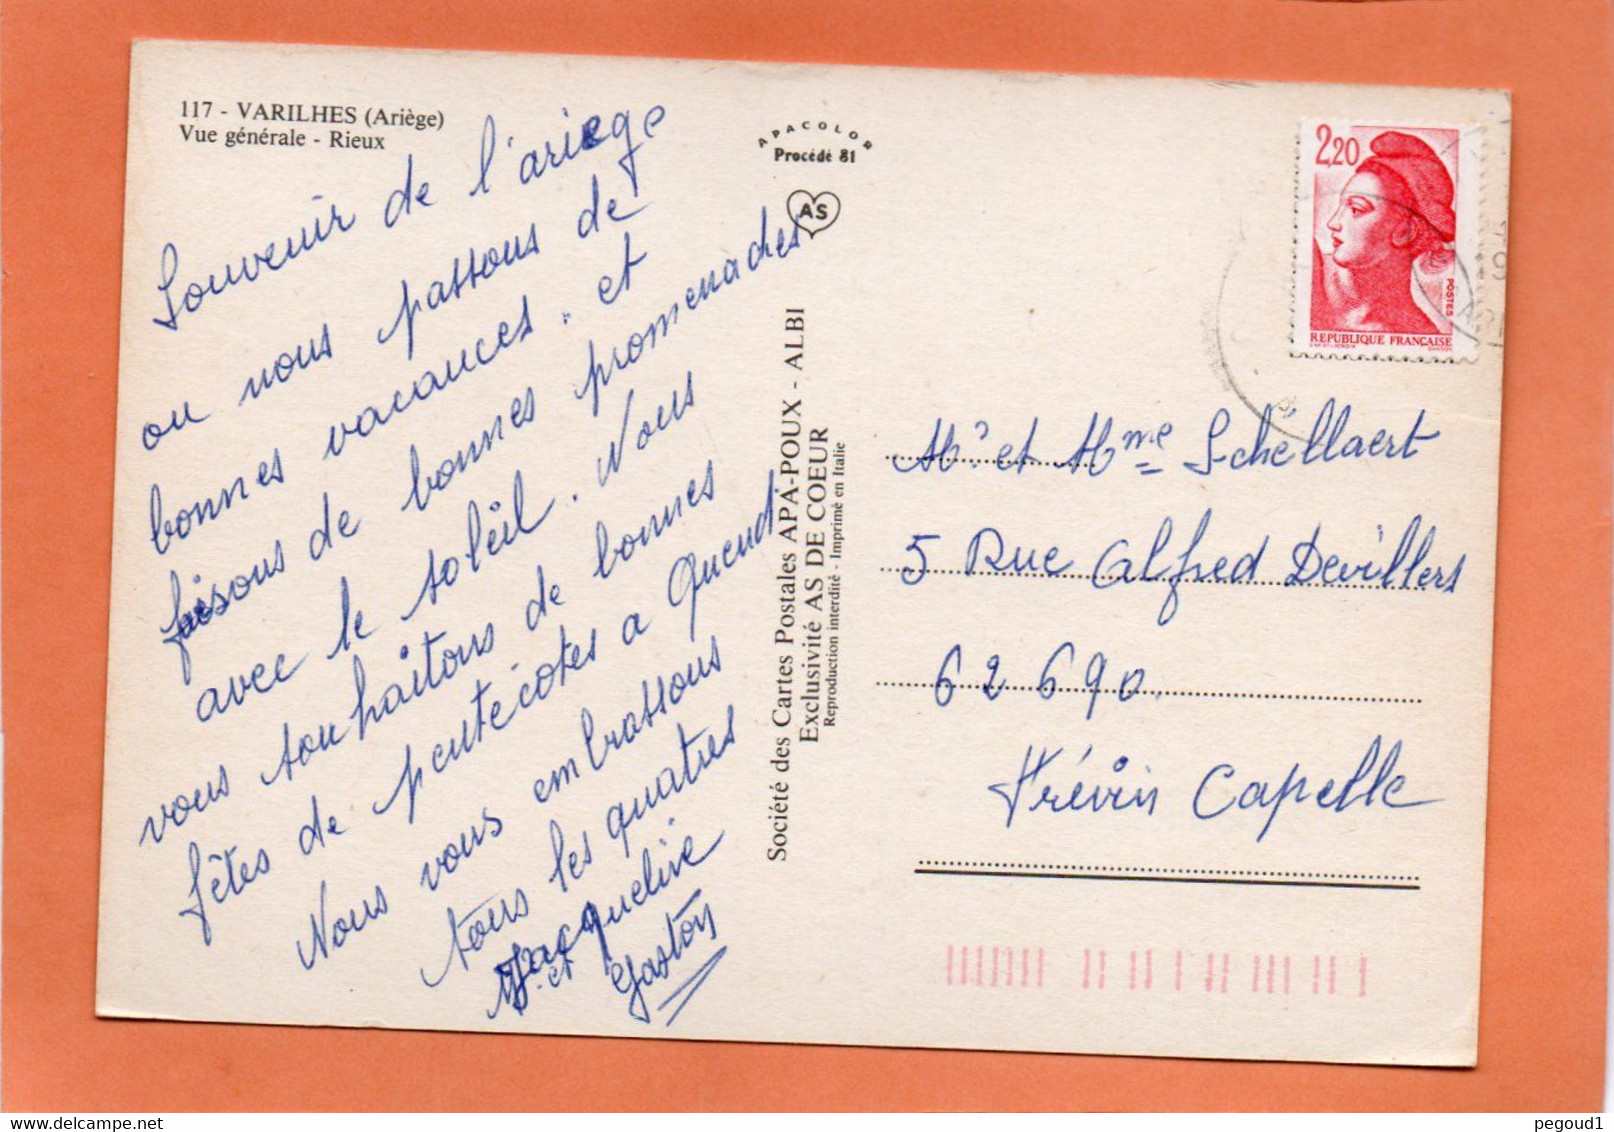 117 - VARILHES (Ariège)
Vue générale - Rieux
Souvenir de l'ariege
ou nous passons de
bonnes vacances. et
faisons de bonnes promenades
avec le soleil. Nous
vous souhaitons de bonnes
fêtes de pentecotes a Quend
Nous vous embrassons
tous les quatres
Jacqueline
et Gaston
APACOLOR
Procédé 81
AS
Société des Cartes Postales APA-POUX - ALBI
Exclusivité AS DE COEUR
Reproduction interdite - Imprimé en Italie
2,20
POSTES
REPUBLIQUE FRANÇAISE
Mr et Mme Schellaert
5 Rue Alfred Devillers
62690
Frévin Capelle
pegoud1